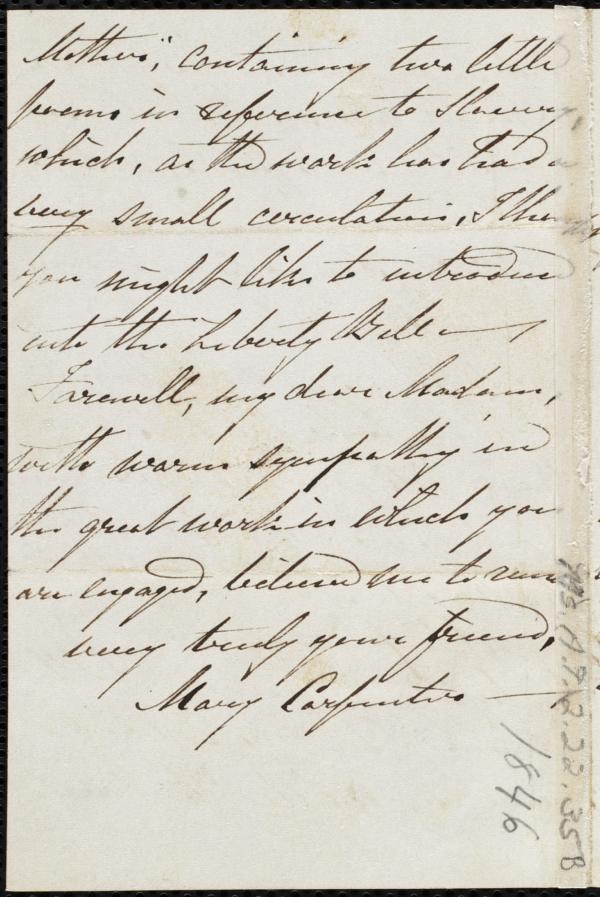 Mothers", containing two little
poems in reference to Slavery,
which, as the work has had a
very small circulation, I thought
you might like to introduce
into the Liberty Bell —
Farewell, my dear Madam,
with warm sympathy in
the great work in which you
are engaged, believe me to
very truly your friend,
Mary Carpenter —
1846
Ms. A.9.2.22.35B